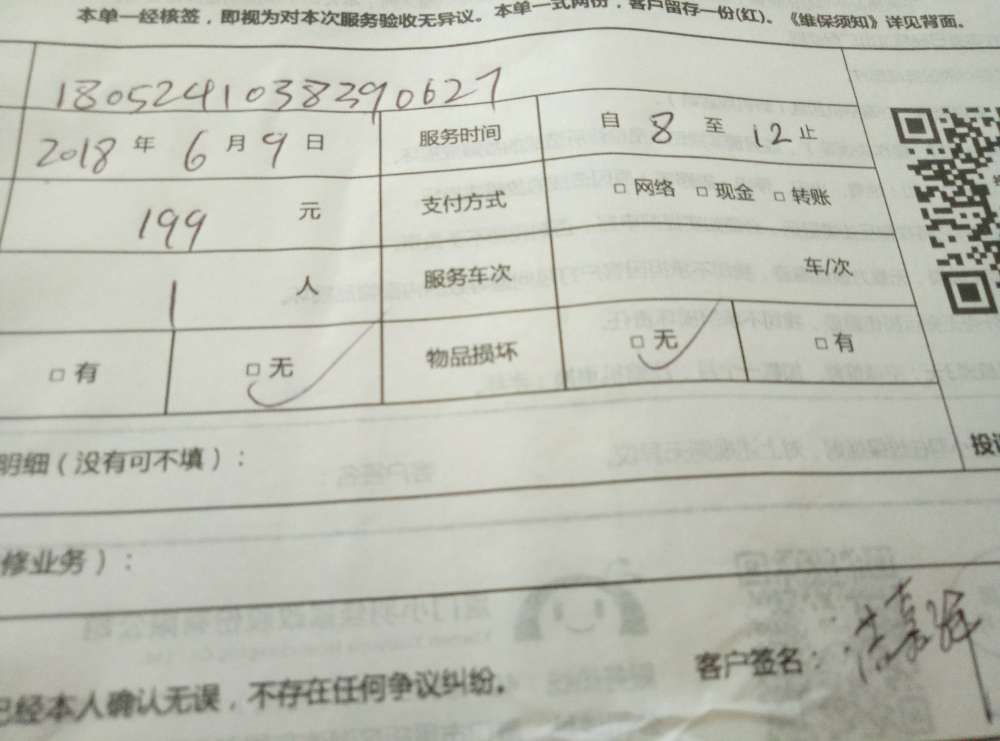 本单一经核签，即视为对本次服务验收无异议。本单一式两份，客户留存一份(红)。《维保须知》详见背面。
1805241038390627
2018 年 6 月 9 日 服务时间 自 8 至 12 止
199 元 支付方式 □ 网络 □ 现金 □ 转账
1 人 服务车次 车/次
□ 有 □ 无 物品损坏 □ 无 □ 有
明细（没有可不填）：
投
修业务）：
客户签名：
已经本人确认无误，不存在任何争议纠纷。